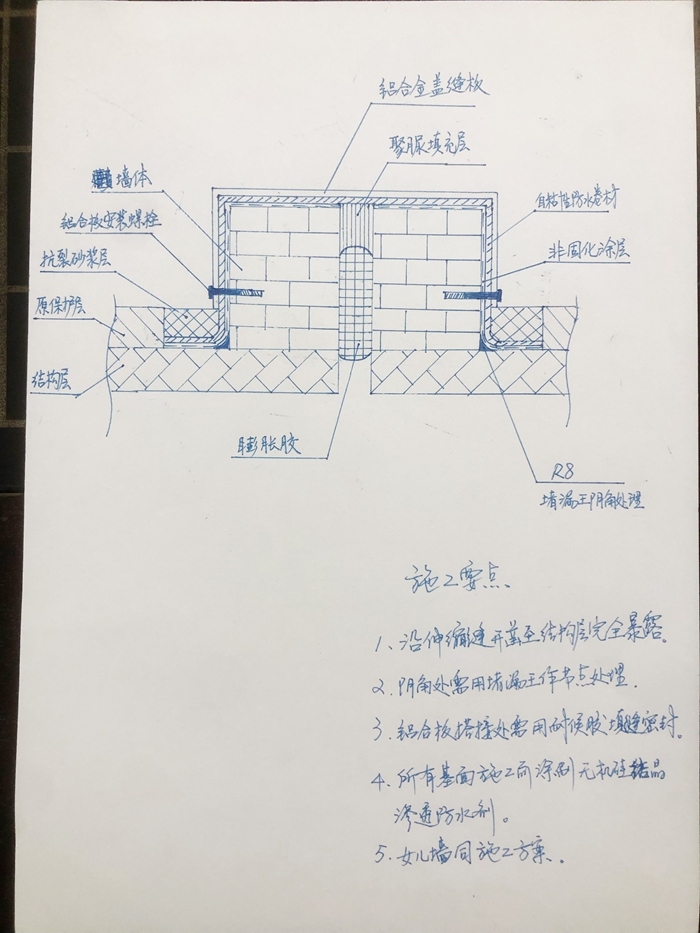 铝合金盖缝板
聚脲填充层
墙体
自粘性防水卷材
铝合板安装螺栓
非固化涂层
抗裂砂浆层
原保护层
结构层
膨胀胶
R8
堵漏王阴角处理
施工要点
1、沿伸缩缝开凿至结构层完全暴露。
2、阴角处需用堵漏王作节点处理.
3、铝合板搭接处需用耐候胶填缝密封。
4、所有基面施工前涂刷无机硅结晶
渗透防水剂。
5、女儿墙同施工方案。